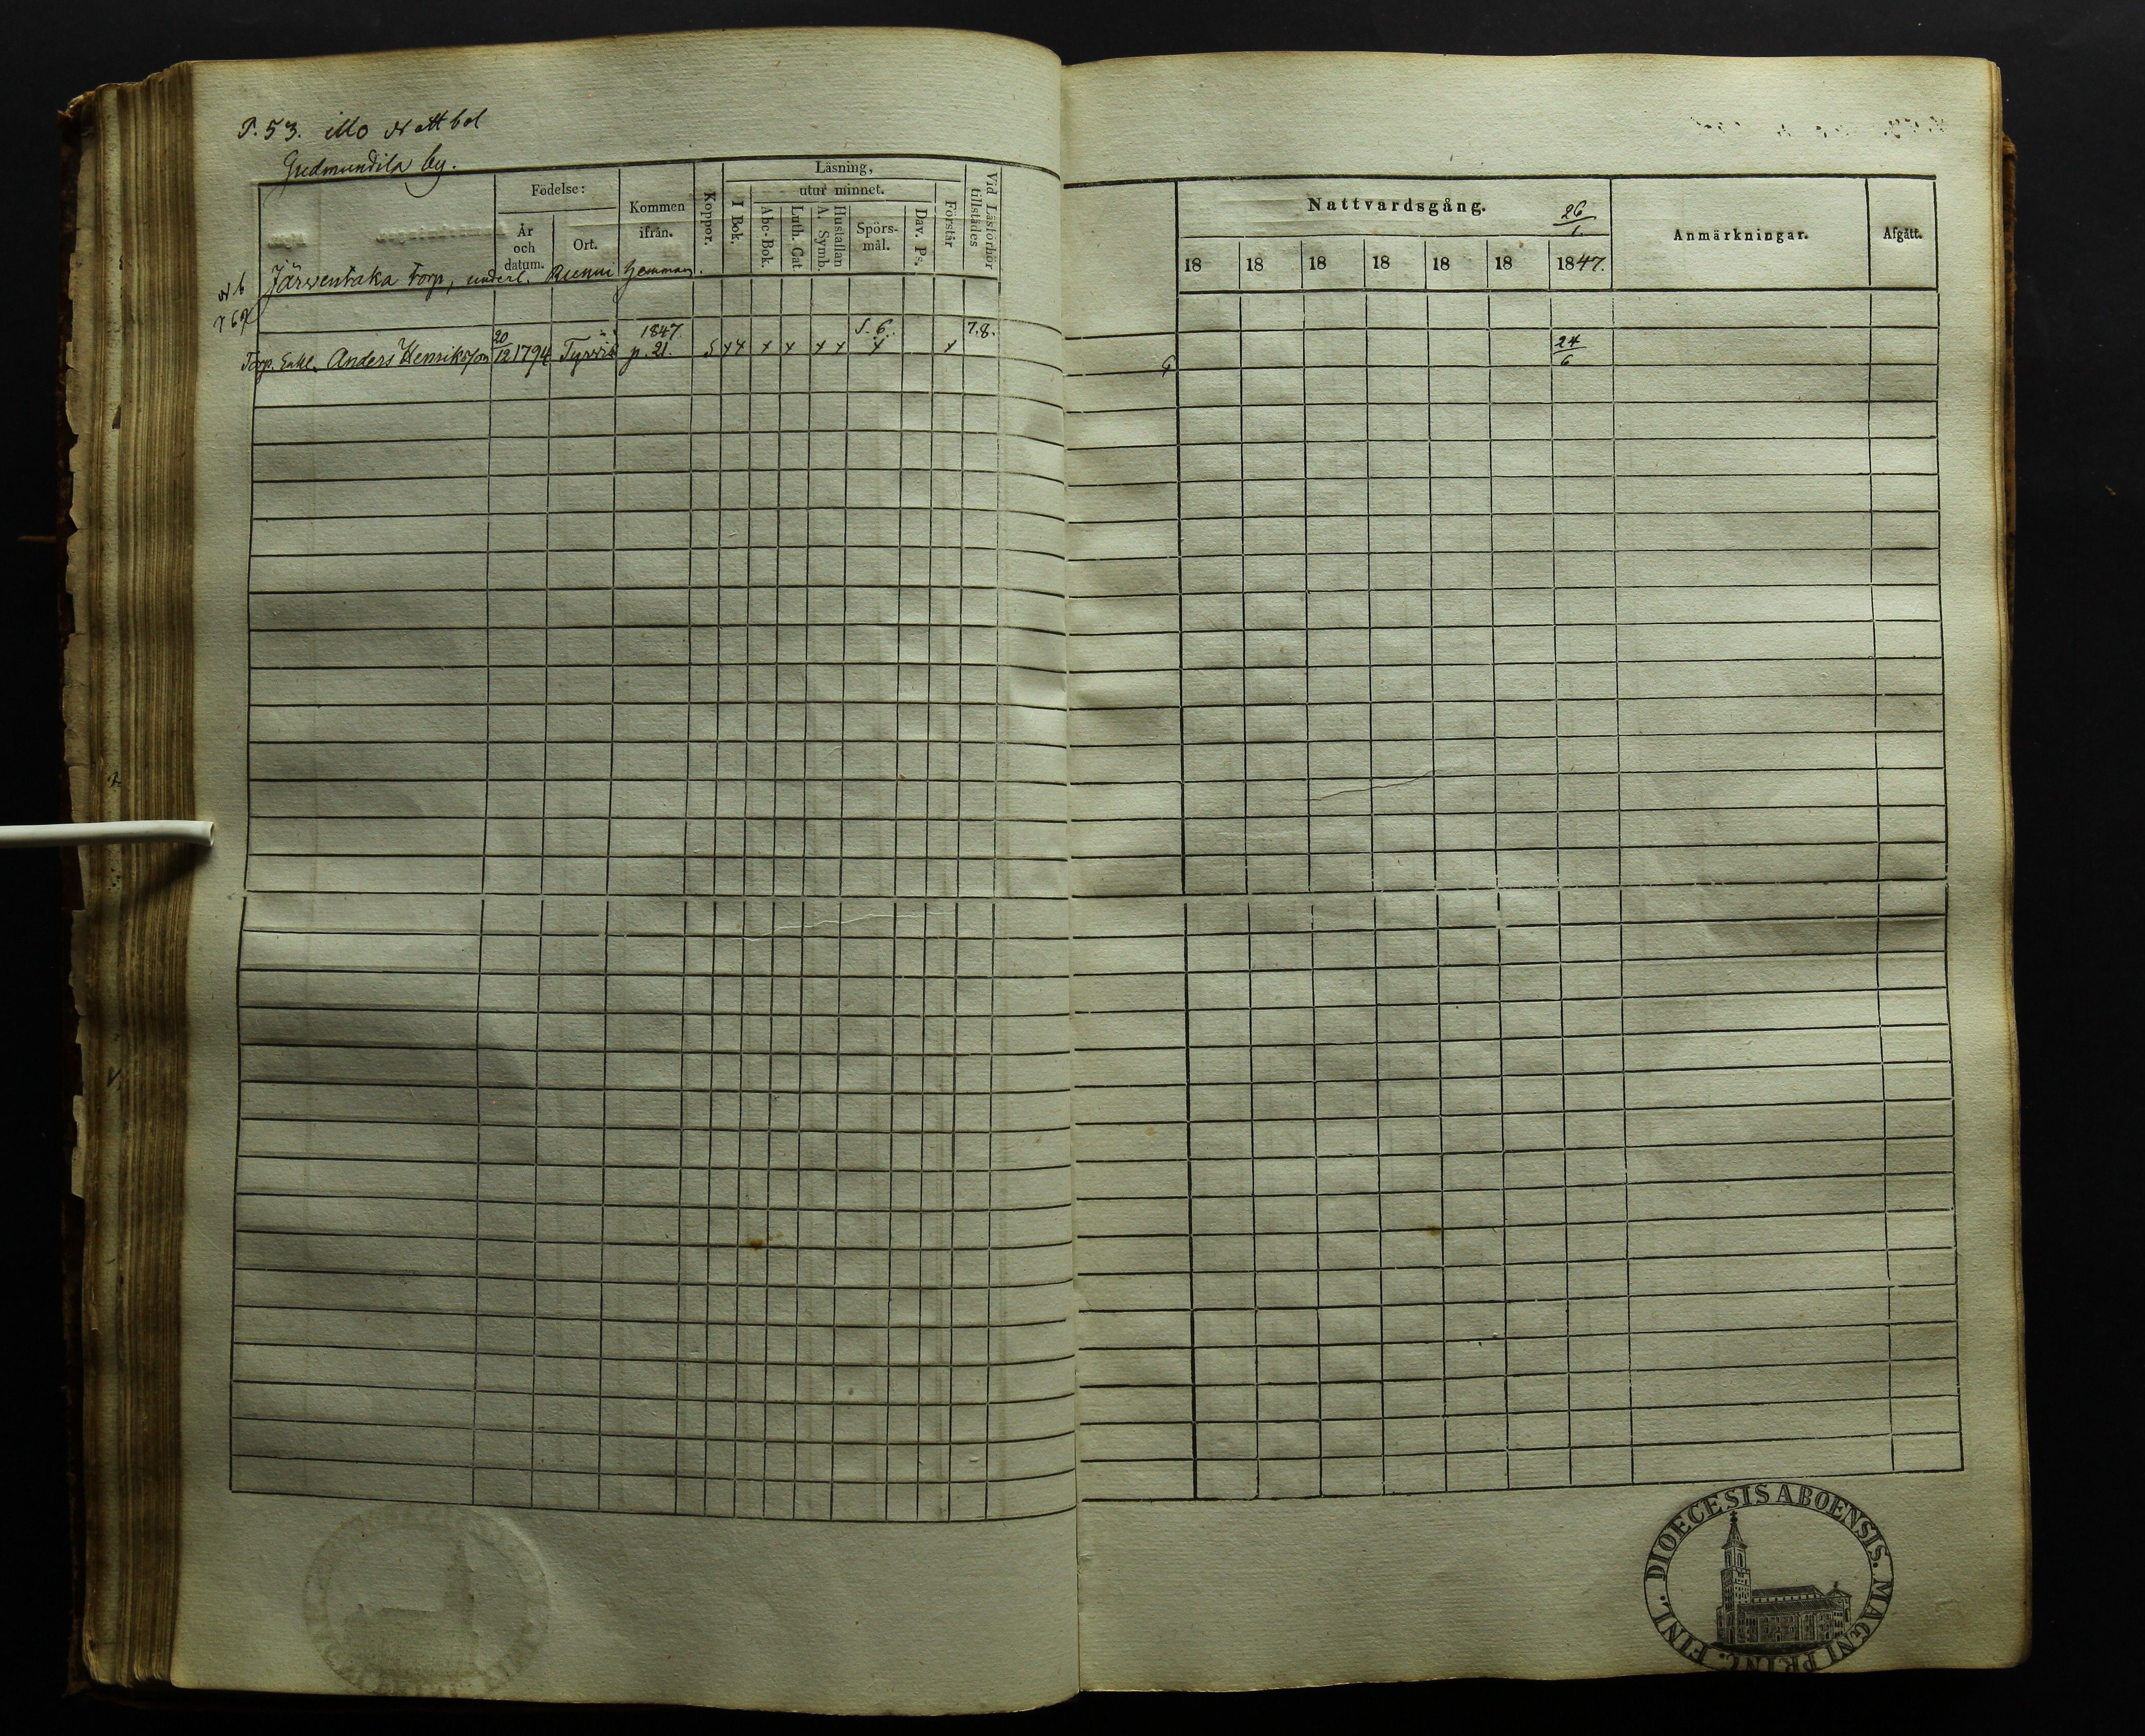 P. 53. Mo Nattbol
Gudmundila by.
Födelse:
År och datum.
Ort.
Kommen ifrån.
Koppor.
Läsning,
I Bok.
utur minnet.
Abc-Bok.
Luth. Cat
A. Symb.
Hustaflan
Spörs-mål.
Dav. Ps.
Förstår
Vid Läsförhör tillstädes
Järventaka torp, underl. Runni hemman.
Torp. Enkl. Anders Henriksson 20/12 1794 Tyrvis 1847. p. 21. S x x x x x x S. 6. x x 7.8.
Nattvardsgång.
26/1.
18 18 18 18 18 18 1847.
Anmärkningar.
Afgått.
24/6
DIOECESIS ABOENSIS. MAGNI PRINC. FINL.